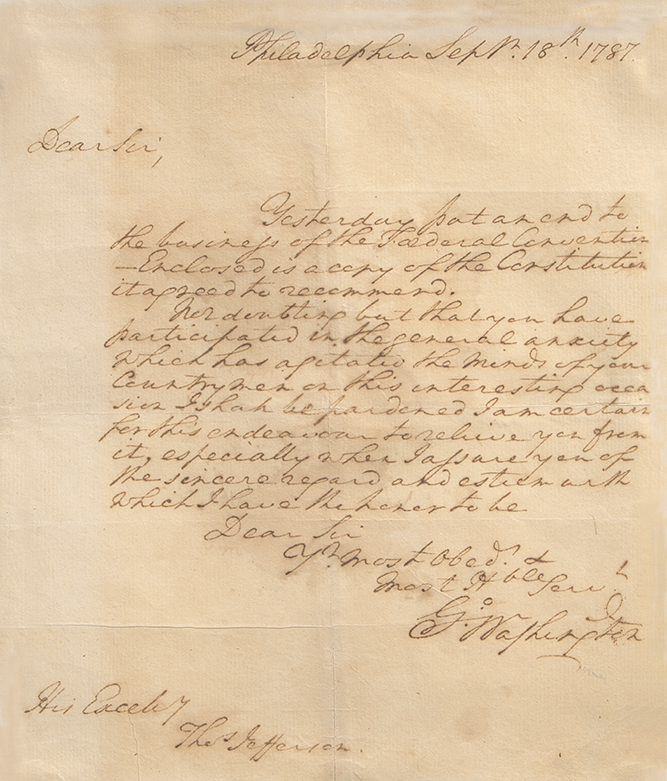 Philadelphia Sepr. 18th. 1787.
Dear Sir,
Yesterday put an end to
the business of the Fœderal Convention
—Enclosed is a copy of the Constitution
it agreed to recommend.
Not doubting but that you have
participated in the general anxiety
which has agitated the minds of your
Countrymen on this interesting occa
sion I shall be pardoned I am certain
for this endeavour to relieve you from
it, especially when I assure you of
the sincere regard and esteem with
which I have the honor to be
Dear Sir
Yr. most Obed. &
most Hble Servt
Go. Washington
His Excely
Thos Jefferson.